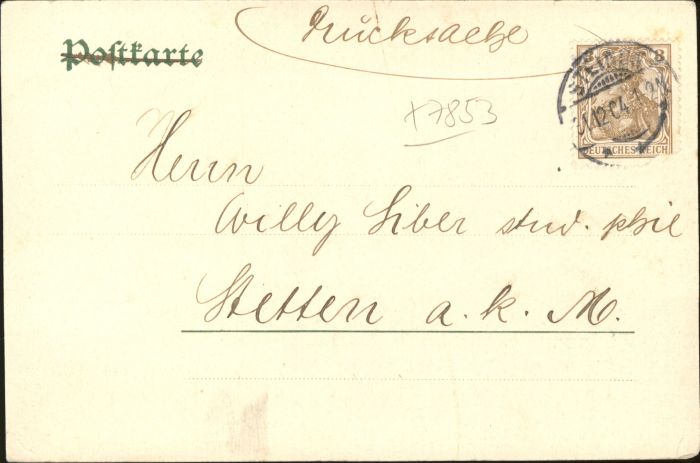 Drucksache
Postkarte
8
31.12.04
DEUTSCHES REICH
x7853
Herrn
Willy Liber stud. phil
Stetten a. k. M.